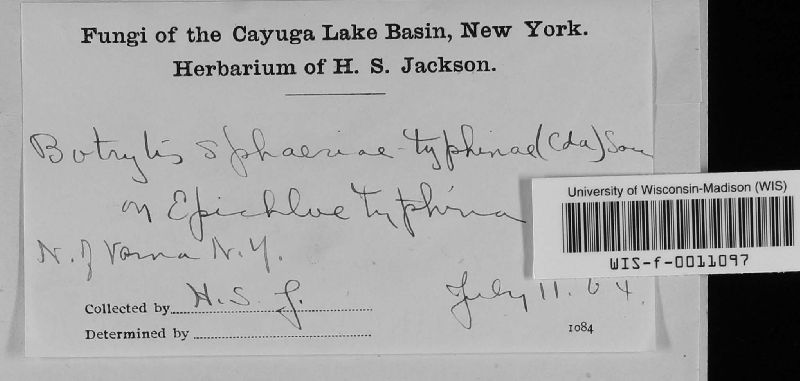 Fungi of the Cayuga Lake Basin, New York.
Herbarium of H. S. Jackson.
Botrytis sphaeriae-typhinae (Cda) Sacc
on Epichloe typhina
N. of Varna N.Y.
Collected by H. S. J.
July 11. 04.
Determined by
1084
University of Wisconsin-Madison (WIS)
WIS-f-0011097